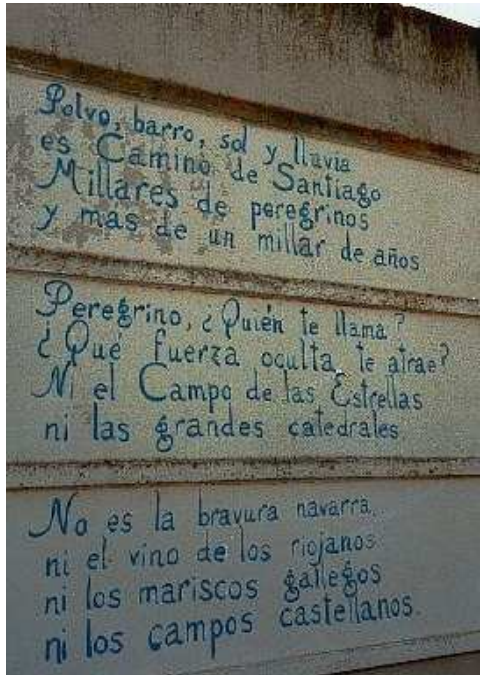 Polvo, barro, sol y lluvia
es Camino de Santiago
Millares de peregrinos
y mas de un millar de años
Peregrino, ¿Quién te llama?
¿Qué fuerza oculta te atrae?
Ni el Campo de las Estrellas
ni las grandes catedrales
No es la bravura navarra,
ni el vino de los riojanos
ni los mariscos gallegos
ni los campos castellanos.